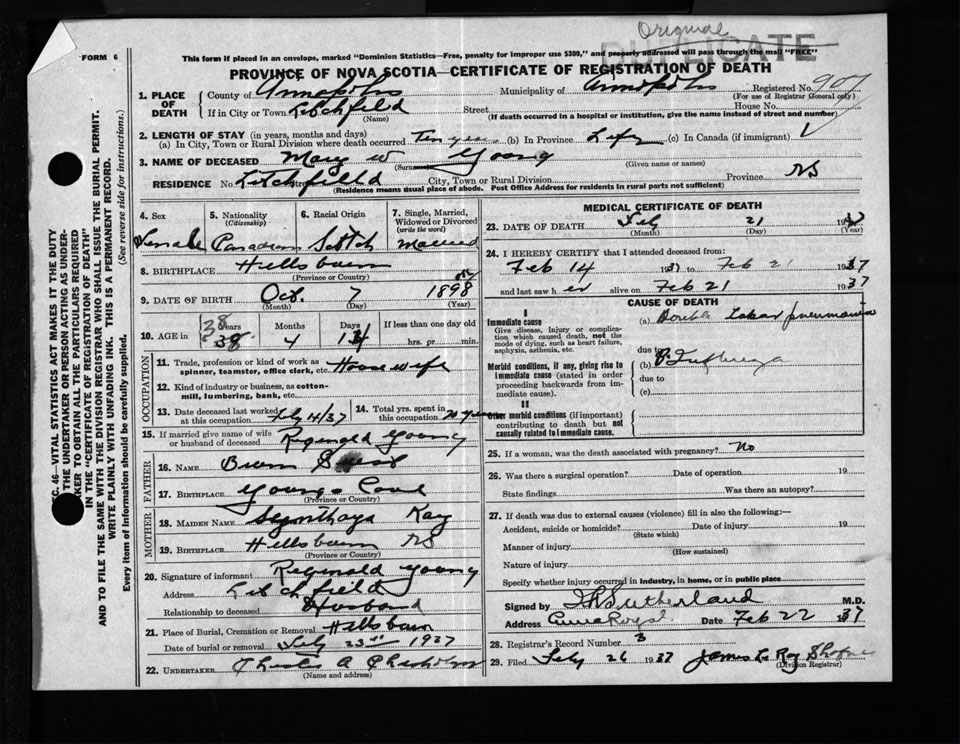 Original
DUPLICATE
FORM 6
This form if placed in an envelope, marked "Dominion Statistics—Free, penalty for improper use $300," and properly addressed will pass through the mail "FREE"
PROVINCE OF NOVA SCOTIA—CERTIFICATE OF REGISTRATION OF DEATH
1. PLACE OF DEATH
County of Annapolis Municipality of Annapolis Registered No. 907
(For use of Registrar General only)
If in City or Town Litchfield Street House No.
(Name) (If death occurred in a hospital or institution, give the name instead of street and number)
2. LENGTH OF STAY (in years, months and days)
(a) In City, Town or Rural Division where death occurred Ten years (b) In Province Life (c) In Canada (if immigrant)
3. NAME OF DECEASED Mary W Young
(Surname) (Given name or names)
RESIDENCE No. Litchfield Street City, Town or Rural Division Province NS
(Residence means usual place of abode. Post Office Address for residents in rural parts not sufficient)
4. Sex 5. Nationality 6. Racial Origin 7. Single, Married, Widowed or Divorced
(Citizenship) (write the word)
Female Canadian Scotch Married
8. BIRTHPLACE Hillsburn
(Province or Country)
9. DATE OF BIRTH Oct. 7 1898
(Month) (Day) (Year)
10. AGE in Years Months Days If less than one day old
38 38 4 hrs. or min.
OCCUPATION
11. Trade, profession or kind of work as spinner, teamster, office clerk, etc. House wife
12. Kind of industry or business, as cotton-mill, lumbering, bank, etc.
13. Date deceased last worked at this occupation Feby 4/37 14. Total yrs. spent in this occupation 20 years
15. If married give name of wife or husband of deceased Reginald Young
FATHER
16. NAME
17. BIRTHPLACE Youngs Cove
(Province or Country)
MOTHER
18. MAIDEN NAME Kay
19. BIRTHPLACE Hillsburn NS
(Province or Country)
20. Signature of informant Reginald Young
Address Litchfield
Relationship to deceased Husband
21. Place of Burial, Cremation or Removal Hillsburn
Date of burial or removal Feby 23rd 1937
22. UNDERTAKER
(Name and address)
MEDICAL CERTIFICATE OF DEATH
23. DATE OF DEATH Feby 21 1937
(Month) (Day) (Year)
24. I HEREBY CERTIFY that I attended deceased from:
Feb 14 1937 to Feb 21 1937
and last saw her alive on Feb 21 1937
CAUSE OF DEATH
I
Immediate cause (a) Double Lobar pneumonia
Give disease, injury or complication which caused death, not the mode of dying, such as heart failure, asphyxia, asthenia, etc.
due to
Morbid conditions, if any, giving rise to immediate cause (stated in order proceeding backwards from immediate cause).
(b) Influenza
due to
(c)
II
Other morbid conditions (if important) contributing to death but not causally related to immediate cause.
25. If a woman, was the death associated with pregnancy? No
26. Was there a surgical operation? Date of operation 19
State findings Was there an autopsy?
27. If death was due to external causes (violence) fill in also the following:—
Accident, suicide or homicide? Date of injury 19
(State which)
Manner of injury
(How sustained)
Nature of injury
Specify whether injury occurred in industry, in home, or in public place
Signed by Sutherland M.D.
Address Anna Royal Date Feb 22 1937
28. Registrar's Record Number 3
29. Filed Feby 26 1937 James Le Roy
(Division Registrar)
SEC. 46—VITAL STATISTICS ACT MAKES IT THE DUTY OF THE UNDERTAKER OR PERSON ACTING AS UNDERTAKER TO OBTAIN ALL THE PARTICULARS REQUIRED IN THE "CERTIFICATE OF REGISTRATION OF DEATH" AND TO FILE THE SAME WITH THE DIVISION REGISTRAR WHO SHALL ISSUE THE BURIAL PERMIT.
WRITE PLAINLY WITH UNFADING INK. THIS IS A PERMANENT RECORD.
Every item of information should be carefully supplied. (See reverse side for instructions.)